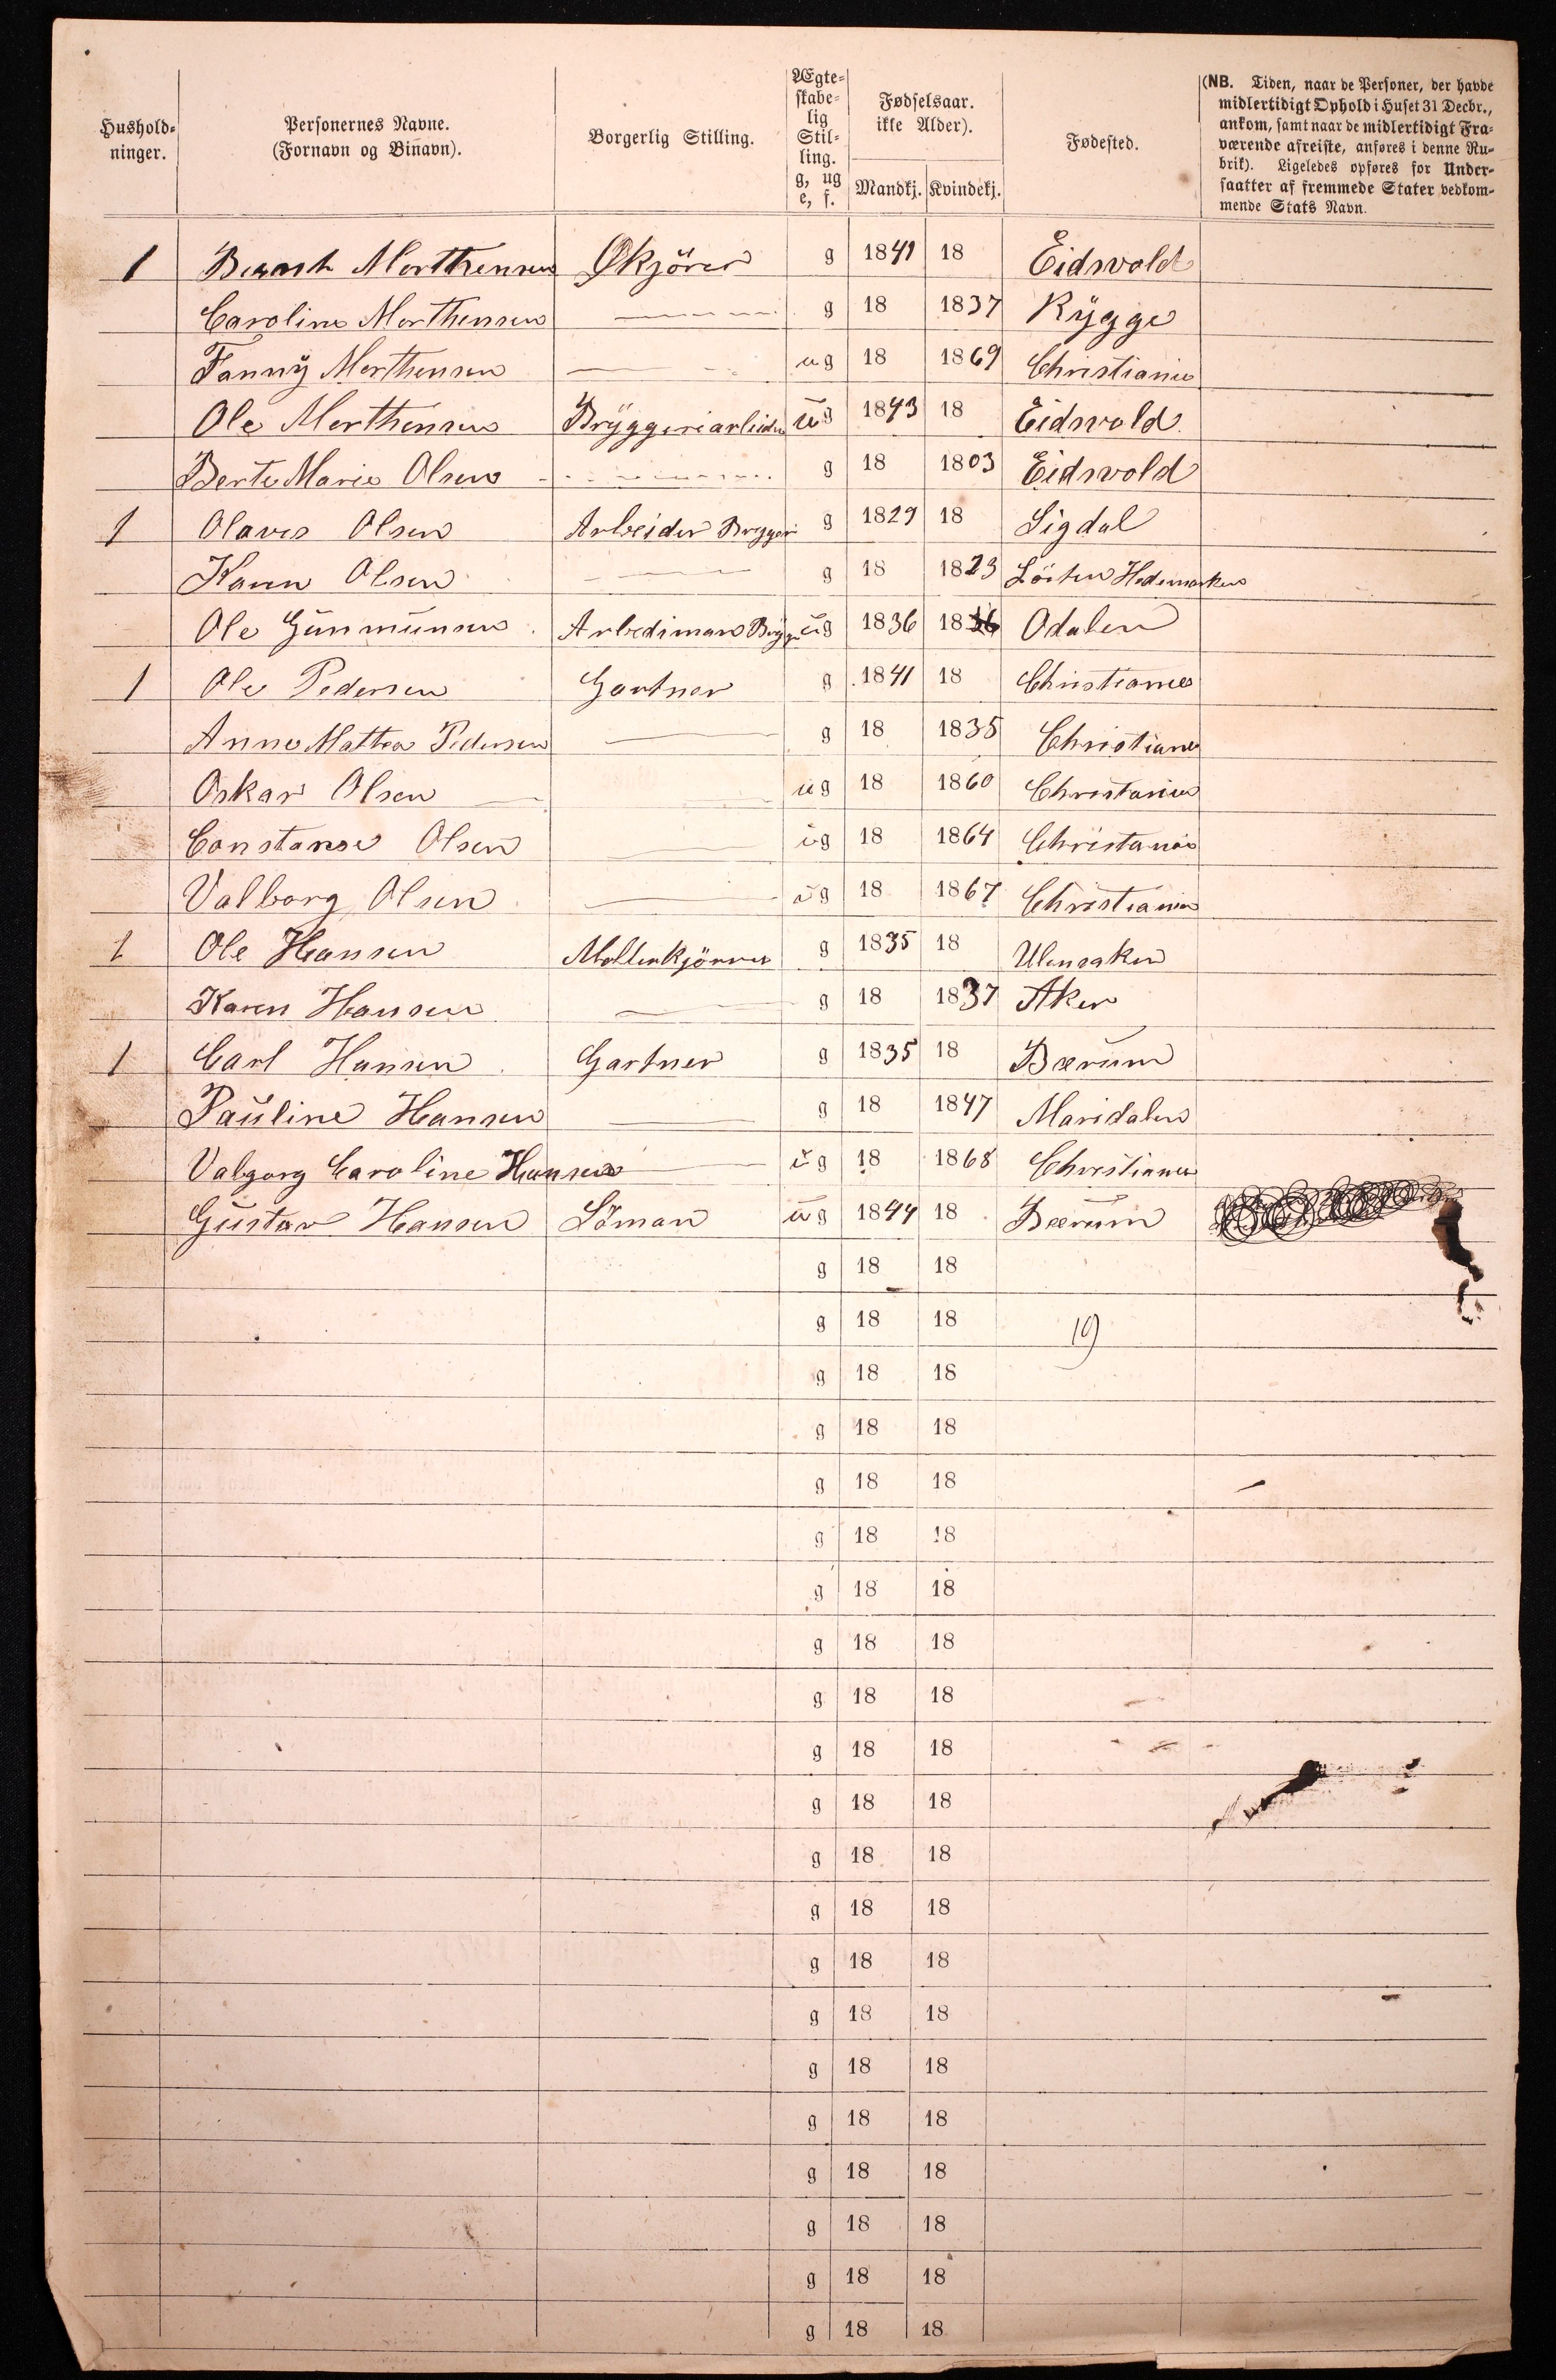 Hushold-
ninger.
Personernes Navne.
(Fornavn og Binavn).
Borgerlig Stilling.
Ægte-
skabe-
lig
Stil-
ling.
g, ug
e, f.
Fødselsaar.
ikke Alder).
Mandkj. Kvindekj.
Fødested.
(NB. Tiden, naar de Personer, der havde
midlertidigt Ophold i Huset 31 Decbr.,
ankom, samt naar de midlertidigt Fra-
værende afreiste, anføres i denne Ru-
brik). Ligeledes opføres for Under-
saatter af fremmede Stater vedkom-
mende Stats Navn.
1 Morthensen Økjörer g 1841 18 Eidsvold
Caroline Morthensen g 18 1837 Rÿgge
Fannÿ Morthensen ug 18 1869 Christiania
Ole Morthensen Brÿggeriarbeider ug 1843 18 Eidsvold
Berte Marie Olsen g 18 1803 Eidsvold
1 Olaves Olsen Arbeider Bryggeri g 1829 18 Sigdal
Karen Olsen g 18 1823 Löiten Hedemarken
Ole Gunmunsen Arbediman ug 1836 18 Odalen
1 Ole Pedersen Gartner g 1841 18 Christiania
Anne Mattea Pedersen g 18 1835 Christiania
Oskar Olsen ug 18 1860 Christania
Constanse Olsen ug 18 1864 Christania
Valborg Olsen ug 18 1867 Christiania
1 Ole Hansen Molterkjörer g 1835 18 Ulensaker
Karen Hansen g 18 1837 Aker
1 Carl Hansen Gartner g 1835 18 Bærum
Pauline Hansen g 18 1847 Maridalen
Valgorg Caroline Hansen ug 18 1868 Christiania
Gustav Hansen Löman ug 1844 18 Bærum
g 18 18
g 18 18 19
g 18 18
g 18 18
g 18 18
g 18 18
g 18 18
g 18 18
g 18 18
g 18 18
g 18 18
g 18 18
g 18 18
g 18 18
g 18 18
g 18 18
g 18 18
g 18 18
g 18 18
g 18 18
g 18 18